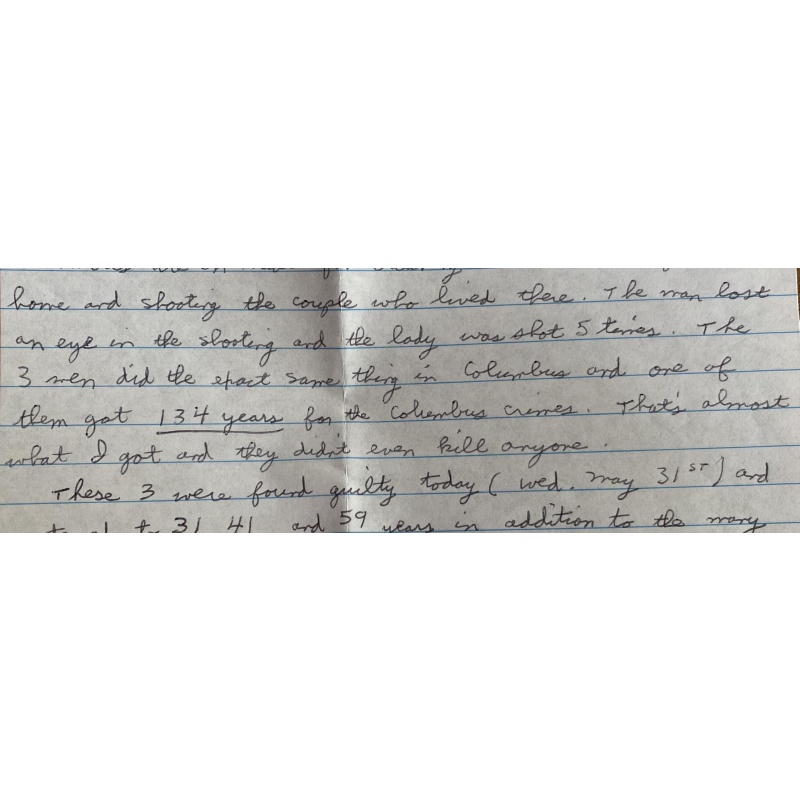 home and shooting the couple who lived there. The man lost
an eye in the shooting and the lady was shot 5 times. The
3 men did the exact same thing in Columbus and one of
them got 134 years for the Columbus crimes. That's almost
what I got and they didn't even kill anyone.
These 3 were found guilty today (wed. may 31ST) and
31 41 and 59 years in addition to the many